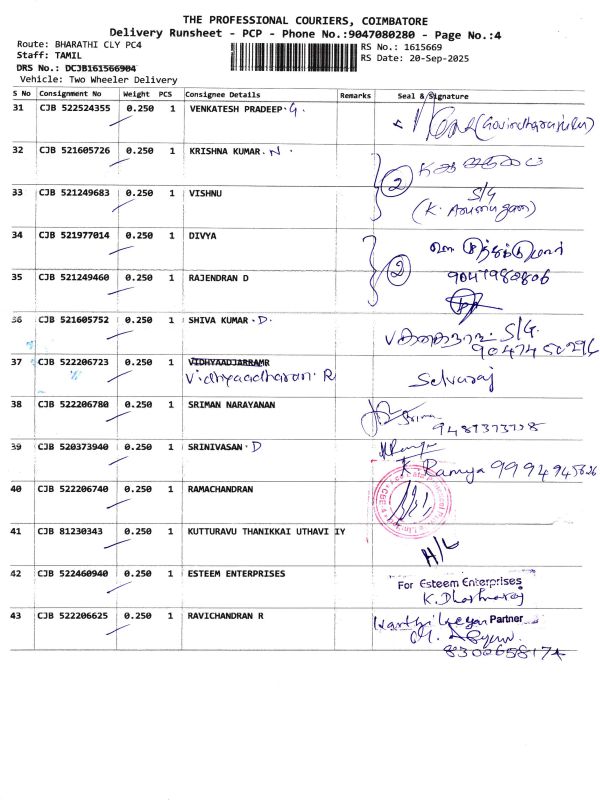 THE PROFESSIONAL COURIERS, COIMBATORE
Delivery Runsheet - PCP - Phone No.:9047080280 - Page No.:4
Route: BHARATHI CLY PC4
RS No.: 1615669
Staff: TAMIL
RS Date: 20-Sep-2025
DRS No.: DCJB161566904
Vehicle: Two Wheeler Delivery
S No Consignment No Weight PCS Consignee Details Remarks Seal & Signature
31 CJB 522524355 0.250 1 VENKATESH PRADEEP. G.
32 CJB 521605726 0.250 1 KRISHNA KUMAR. N.
2
33 CJB 521249683 0.250 1 VISHNU S/G
(K. Arumugam)
34 CJB 521977014 0.250 1 DIVYA
2
35 CJB 521249460 0.250 1 RAJENDRAN D 9047980806
36 CJB 521605752 0.250 1 SHIVA KUMAR. D. S/G.
9047450296
37 CJB 522206723 0.250 1 VIDHYAADJARRAMR
Vidhyaadharan. R Selvaraj
38 CJB 522206780 0.250 1 SRIMAN NARAYANAN
39 CJB 520373940 0.250 1 SRINIVASAN. D
K Ramya 9994945626
40 CJB 522206740 0.250 1 RAMACHANDRAN
41 CJB 81230343 0.250 1 KUTTURAVU THANIKKAI UTHAVI IY
H/L
42 CJB 522460940 0.250 1 ESTEEM ENTERPRISES For Esteem Enterprises
K. Dharmaraj
43 CJB 522206625 0.250 1 RAVICHANDRAN R Partner